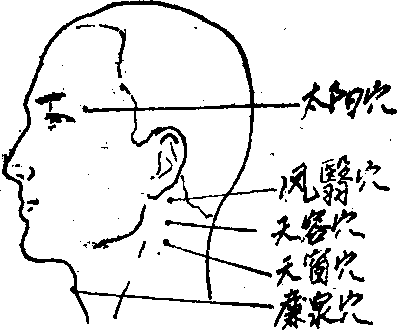 太阳穴
风翳穴
天容穴
天窗穴
廉泉穴